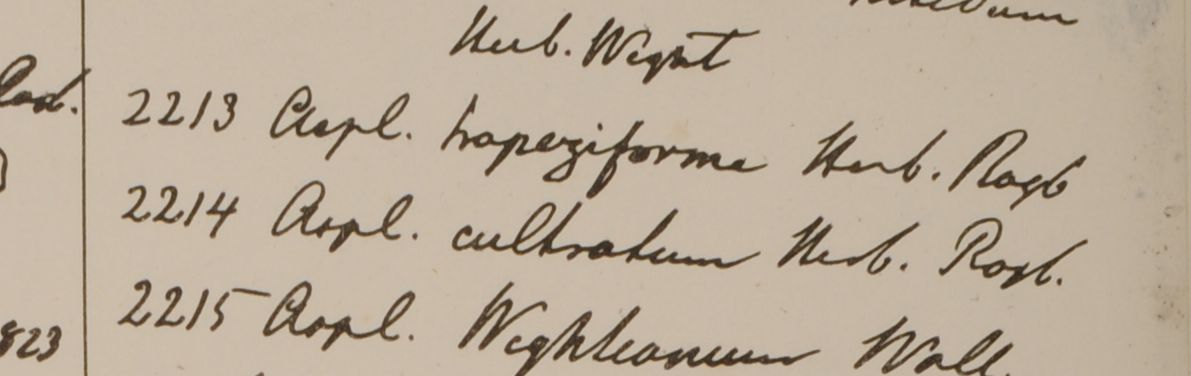 Herb. Wight
Cad.
2213 Aspl. trapeziforme Herb. Roxb
2214 Aspl. cultratum Herb. Roxb.
2215 Aspl. Wightianum Wall.
823